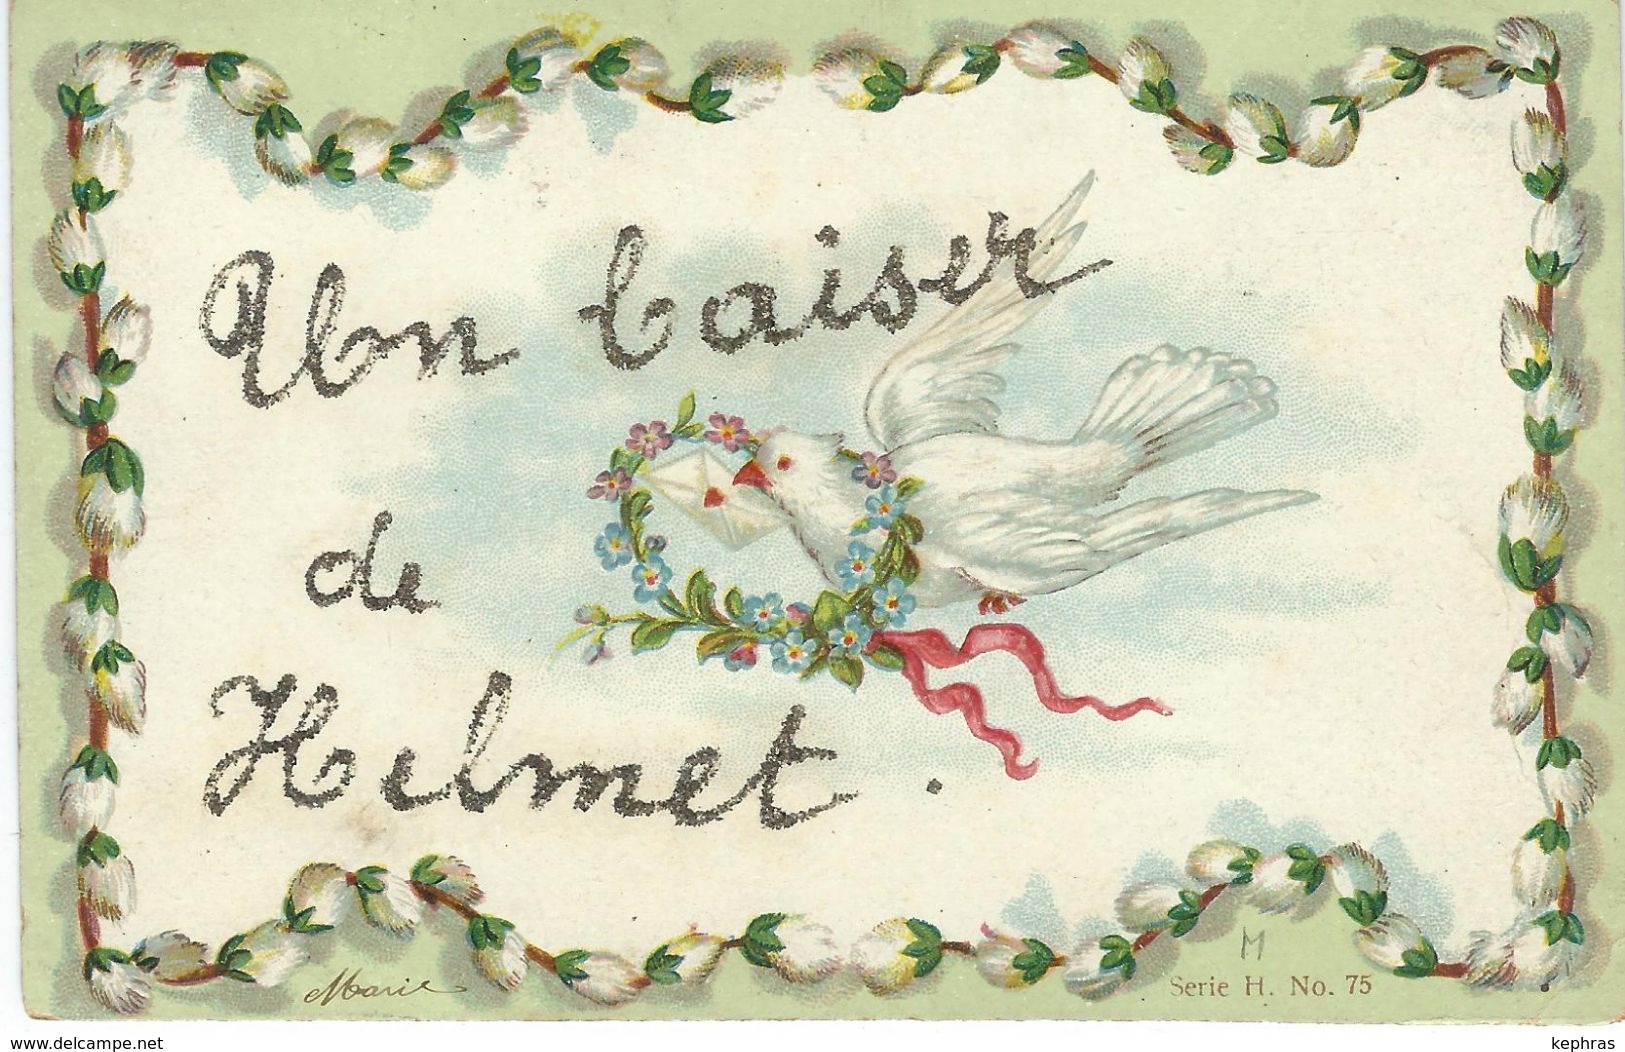 Un baiser
de
Helmet.
Marie
M
Serie H. No. 75
www.delcampe.net
kephras